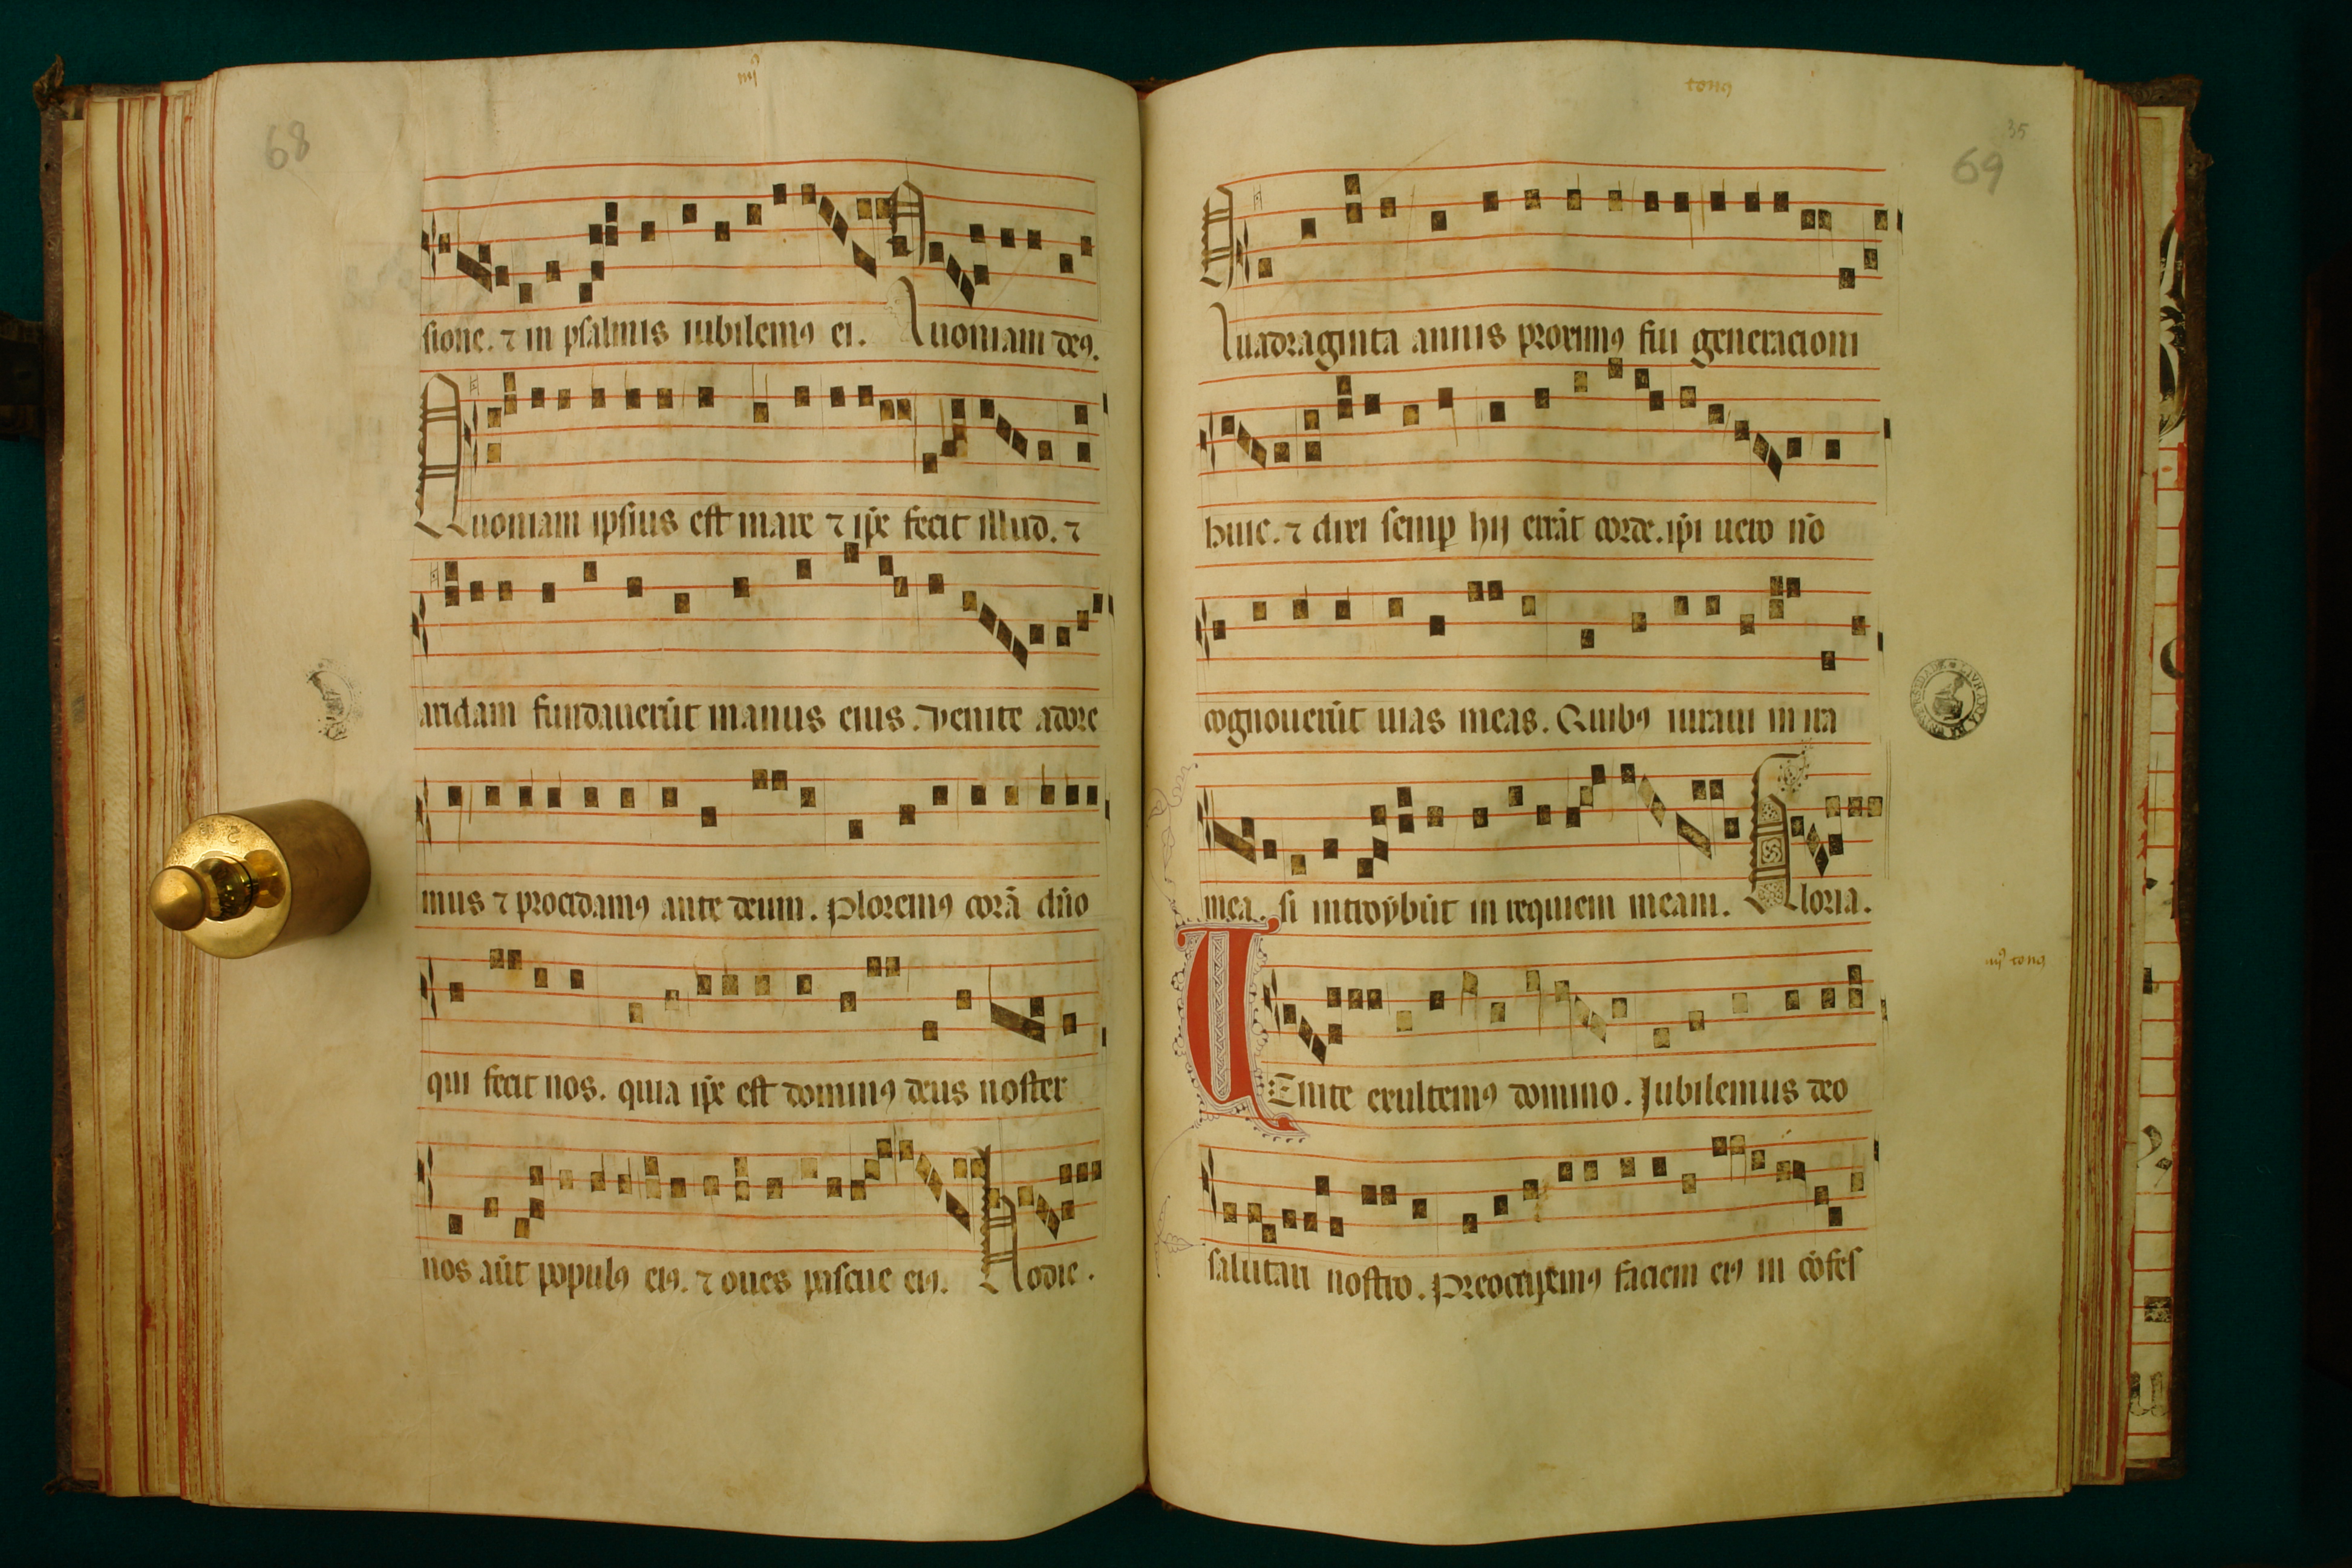 iiijꝰ
68
sione. ⁊ in psalmis iubilemꝯ ei. Quoniam deꝯ.
Quoniam ipsius est mare ⁊ ip̄e fecit illud. ⁊
aridam fundauerūt manus eius. Venite adore
mus ⁊ procidamꝯ ante deum. Ploremꝯ corā dño
qui fecit nos. quia ip̄e est dominꝯ deus noster
nos aūt populꝯ eiꝯ. ⁊ oues pascue eiꝯ. Hodie.
tonꝯ
35
69
Quadraginta annis proximꝯ fui generacioni
huic. ⁊ dixi semꝑ hij errāt corde. ip̄i uero nō
cognouerūt uias meas. Quibꝯ iuraui in ira
mea. si introybūt in requiem meam. Gloria.
iiijꝰ tonꝯ
VEnite exultemꝯ domino. Iubilemus deo
salutari nostro. Preoccupemꝯ faciem eiꝯ in cōfes